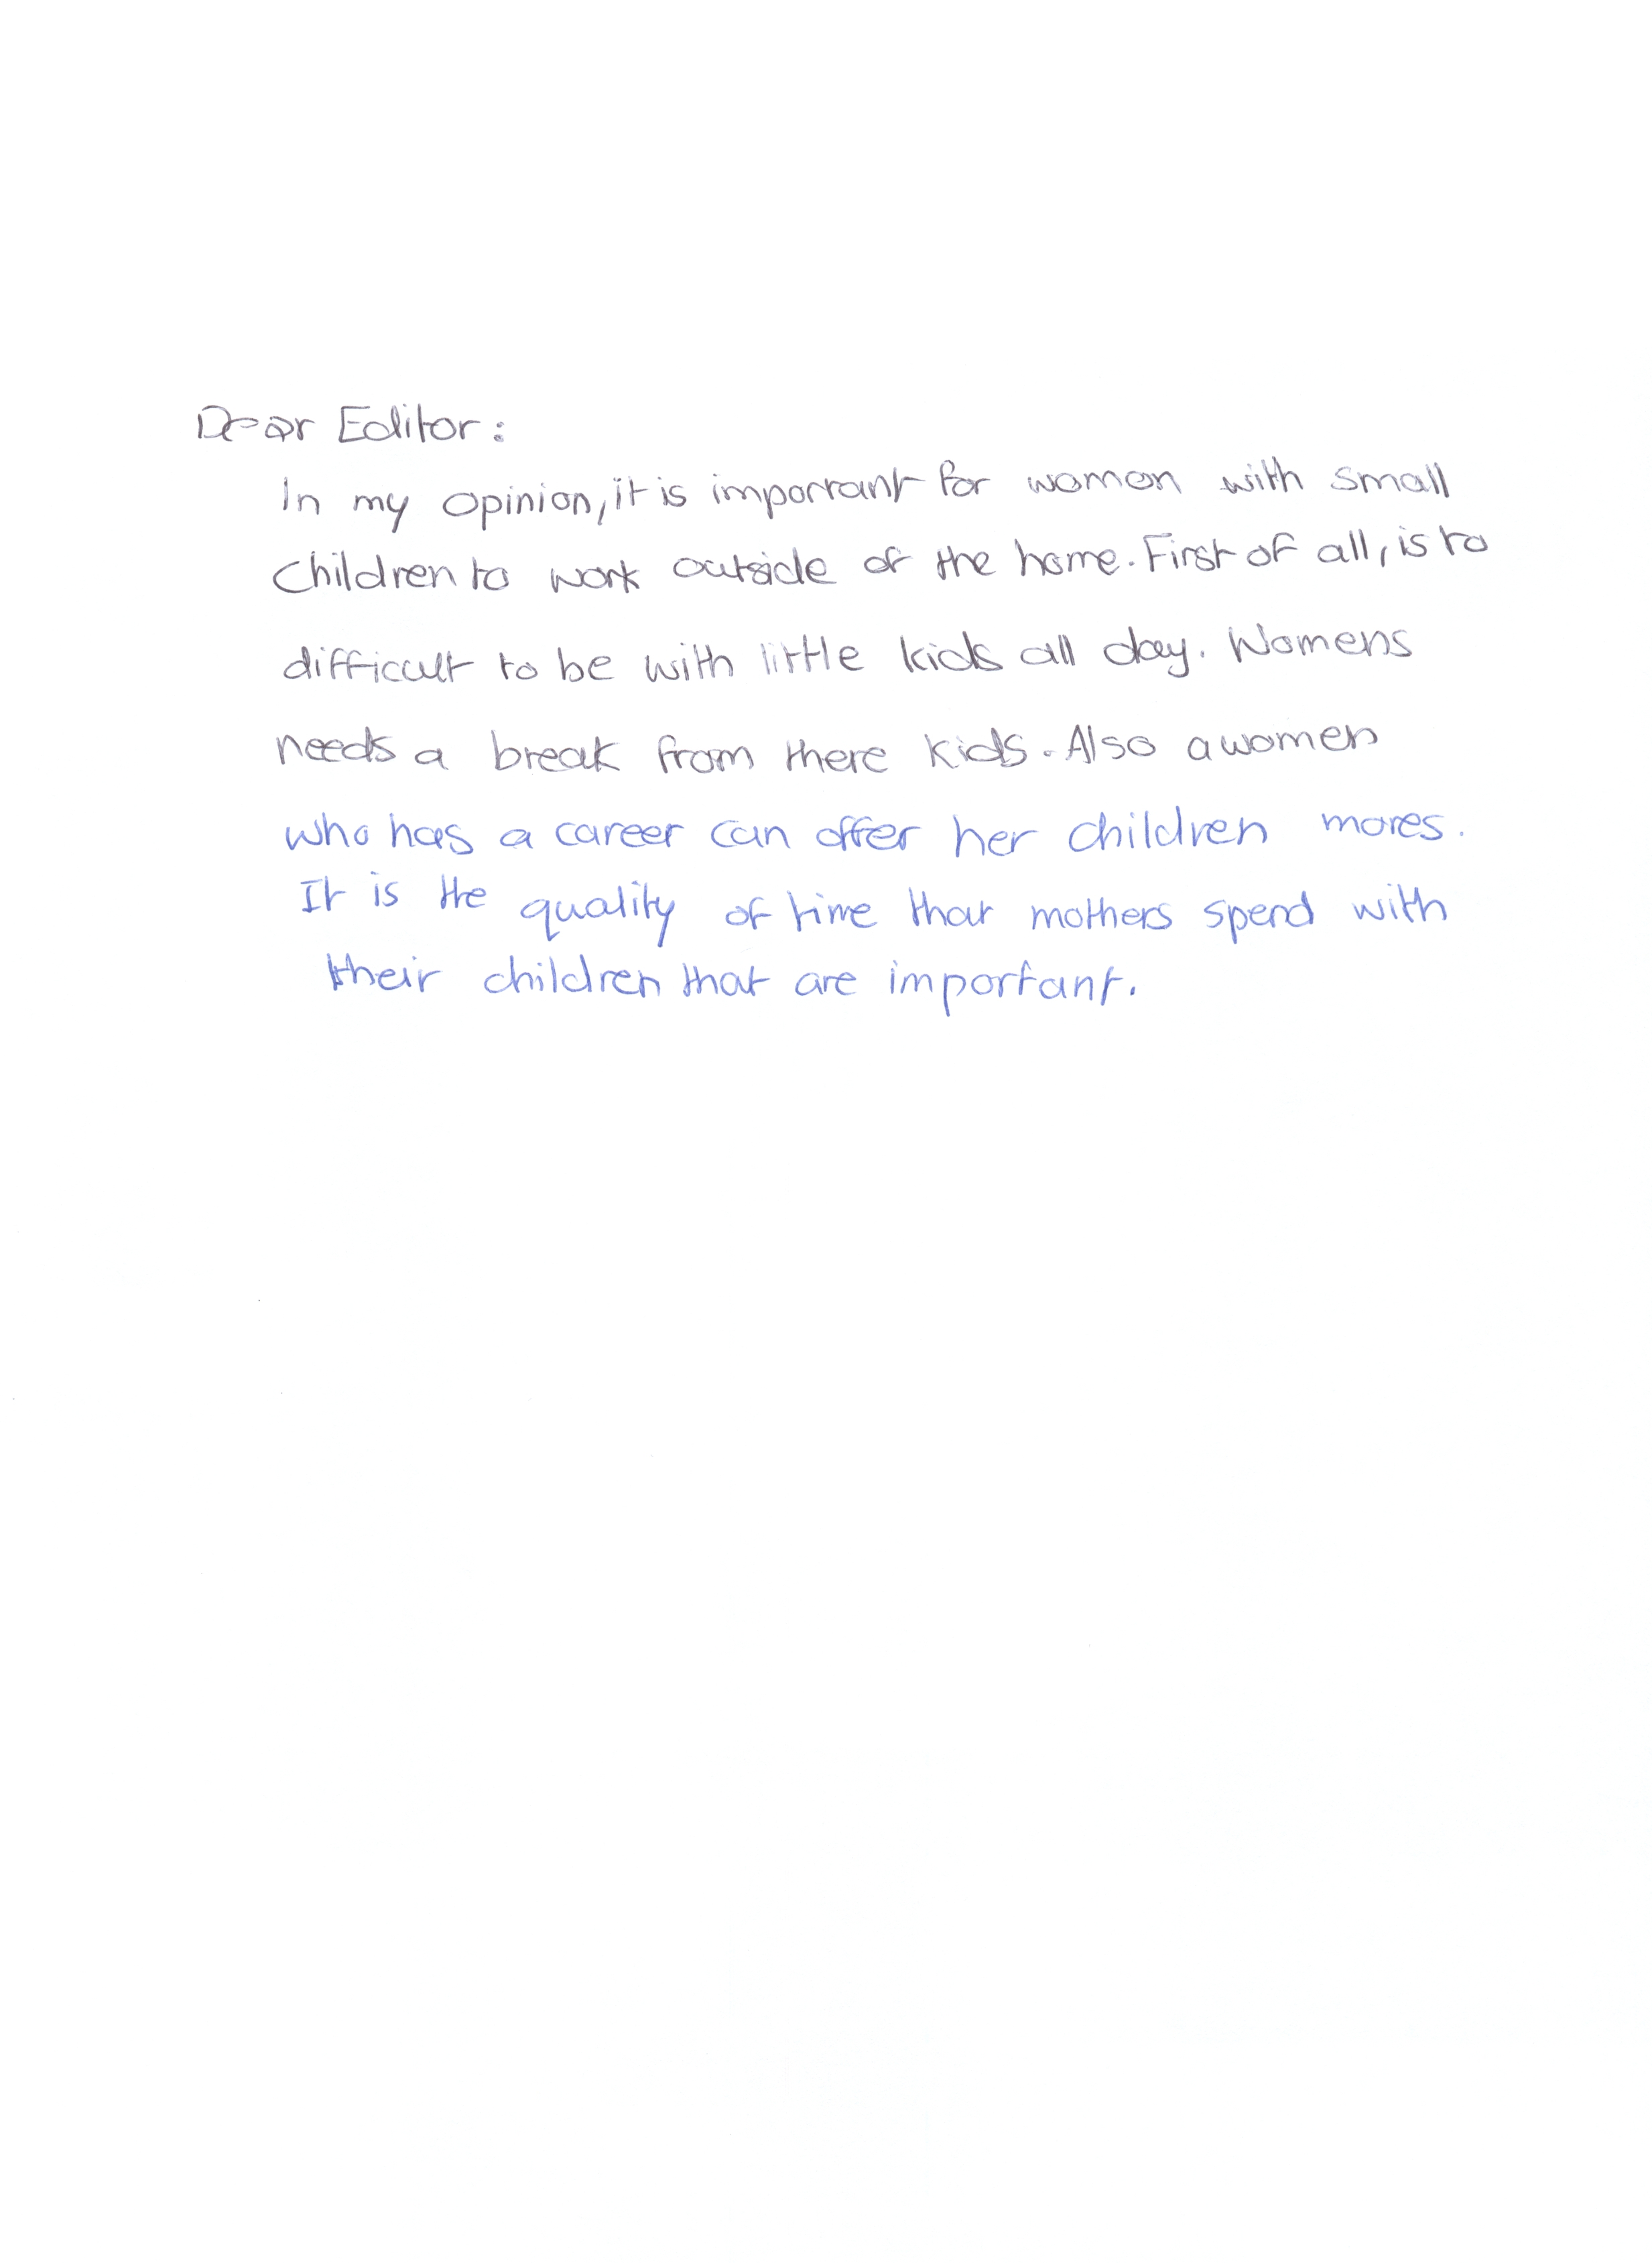 Dear Editor:
In my opinion, it is important for woman with small
children to work outside of the home. First of all, is to
difficult to be with little kids all day. Womens
needs a break from there kids. Also a women
who has a career can offer her children mores.
It is the quality of time that mothers spend with
their children that are important.